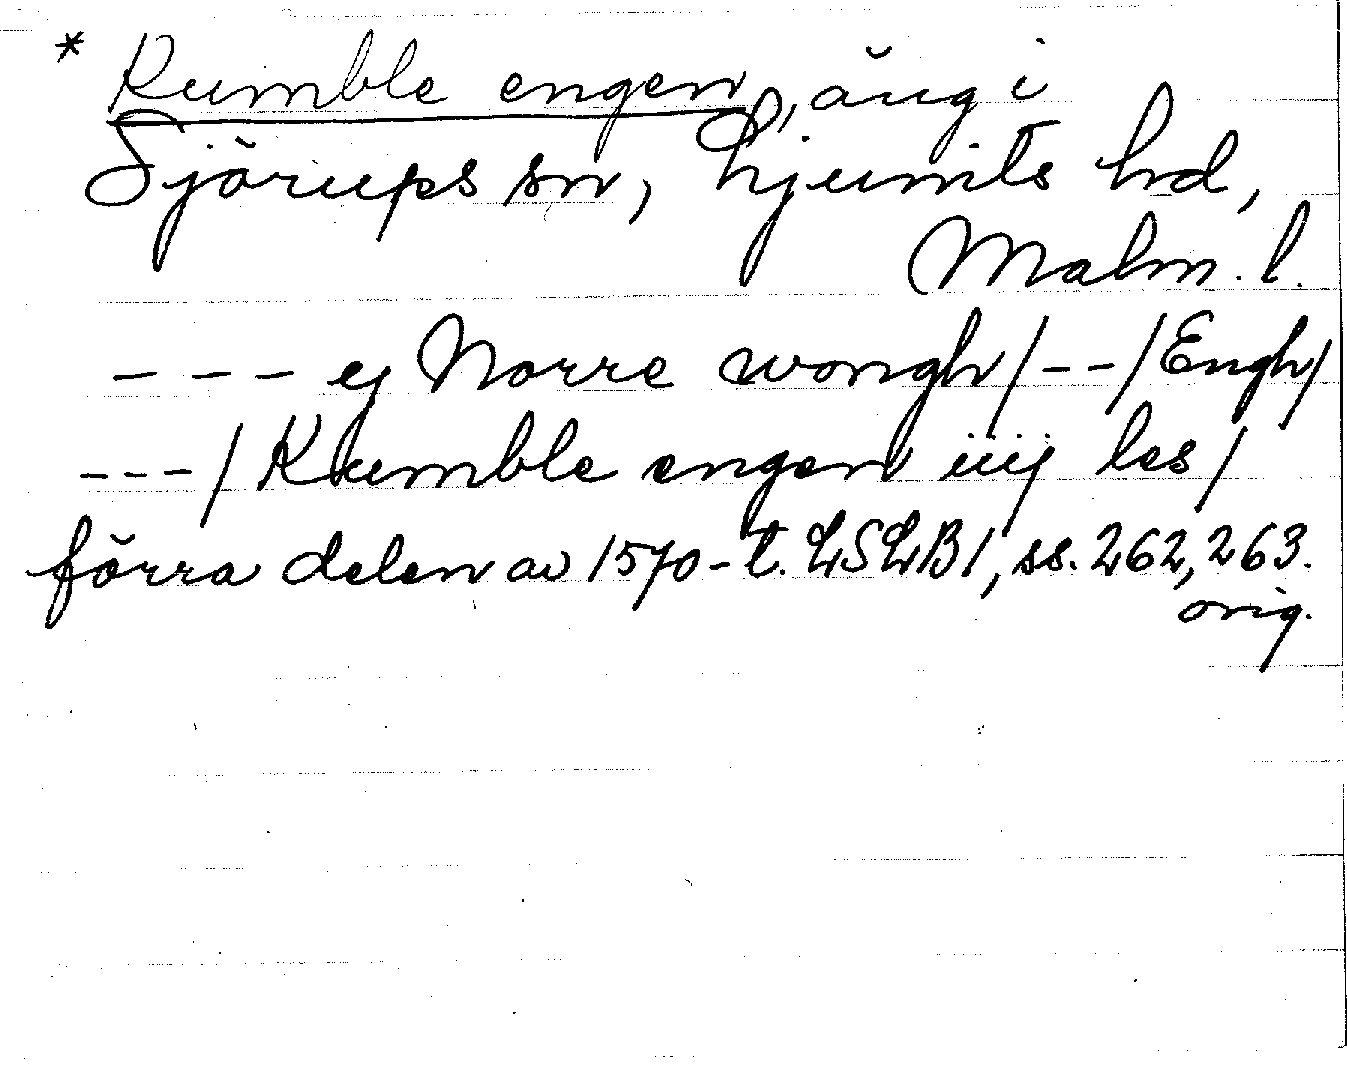 * Kumble engen, äng i
Sjörups sn, Ljunits hd,
Malm. l.
- - - ej Norre wongh/--/Engh/
---/Kumble engen iiij les/
förra delen av 1570-t. LSLB1, ss. 262, 263.
orig.